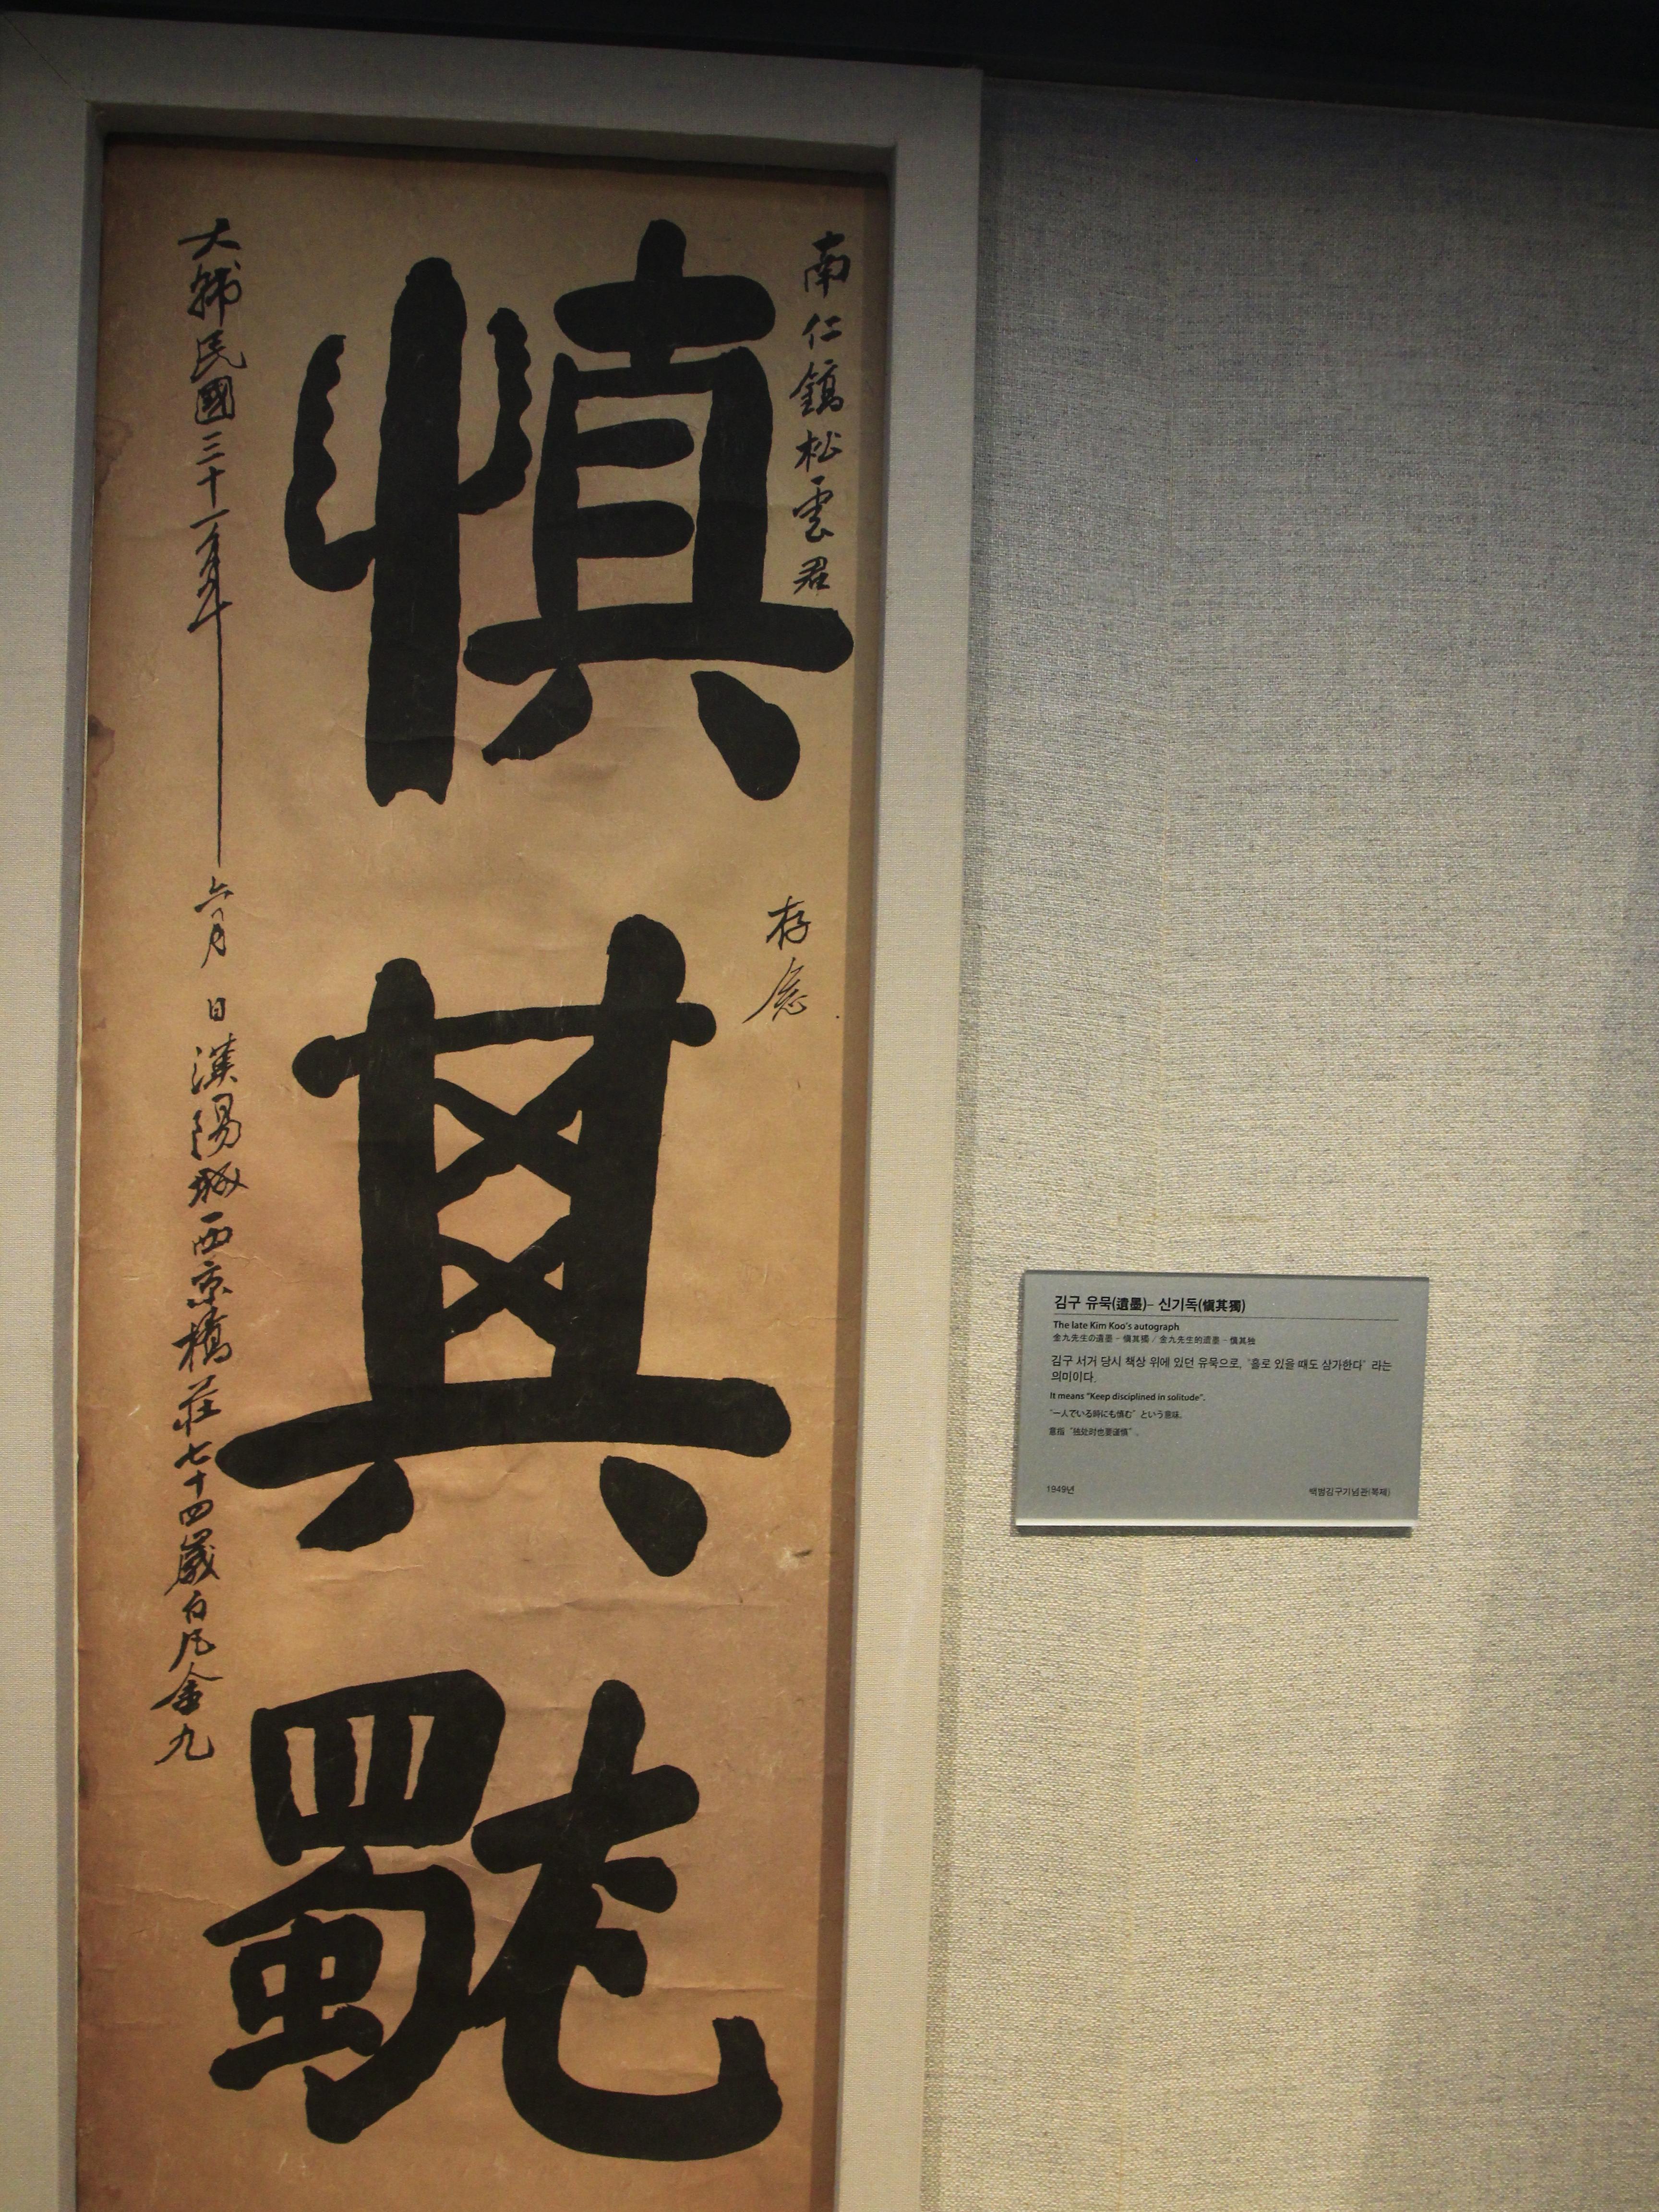 南仁鎬松雲君 存念
愼其獨
大韓民國三十一年 六月 日漢陽城西京橋莊七十四歲白凡金九
김구 유묵(遺墨)– 신기독(愼其獨)
The late Kim Koo's autograph
金九先生の遺墨 – 愼其獨 / 金九先生的遗墨 – 慎其独
김구 서거 당시 책상 위에 있던 유묵으로, "홀로 있을 때도 삼가한다" 라는
의미이다.
It means "Keep disciplined in solitude".
"一人でいる時にも慎む" という意味。
意指 "独处时也要谨慎" 。
1949년
백범김구기념관(복제)